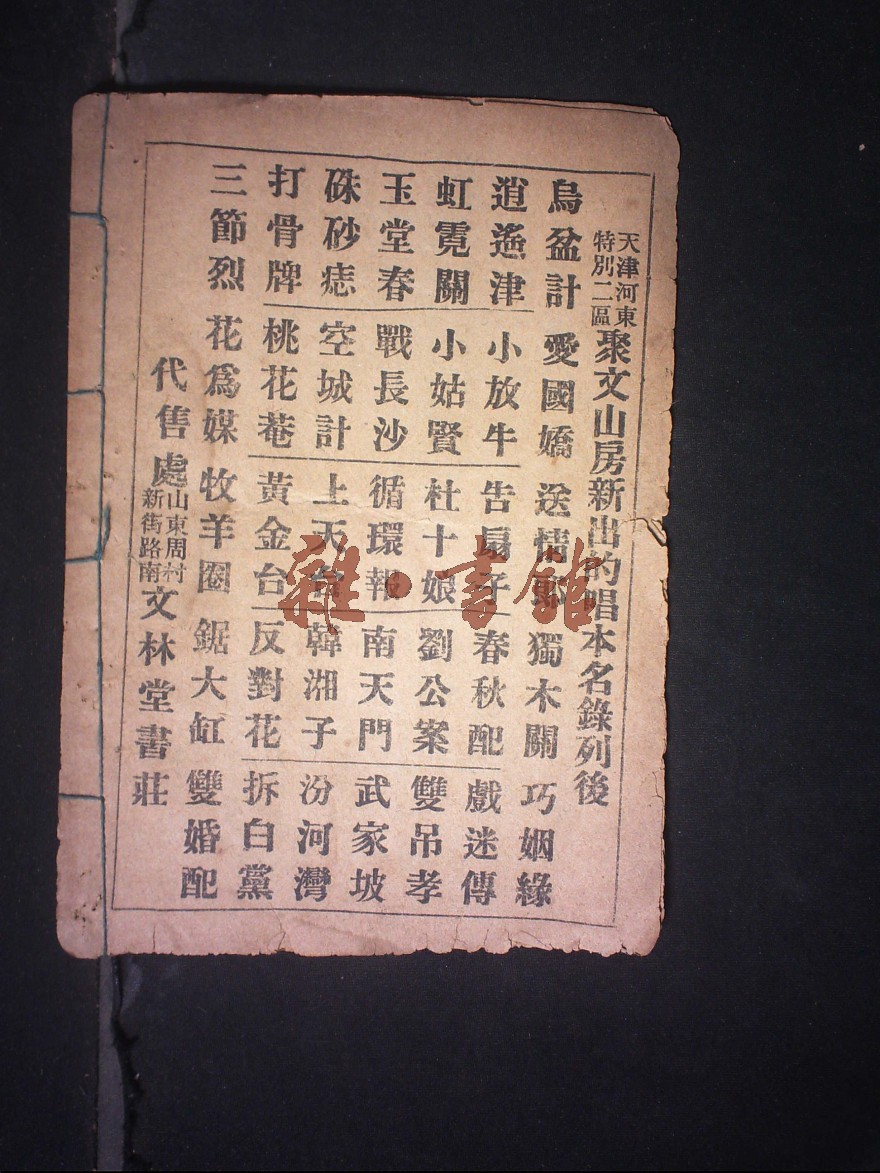 天津河東
特別二區
聚文山房新出的唱本名錄列後
烏盆計 愛國嬌 送情郎 獨木關 巧姻緣
逍遙津 小放牛 告扇子 春秋配 戲迷傳
虹霓關 小姑賢 杜十娘 劉公案 雙吊孝
玉堂春 戰長沙 循環報 南天門 武家坡
硃砂痣 空城計 上天台 韓湘子 汾河灣
打骨牌 桃花菴 黃金台 反對花 拆白黨
三節烈 花爲媒 牧羊圈 鋸大缸 雙婚配
代售處
山東周村
新街路南
文林堂書莊
雜·書館